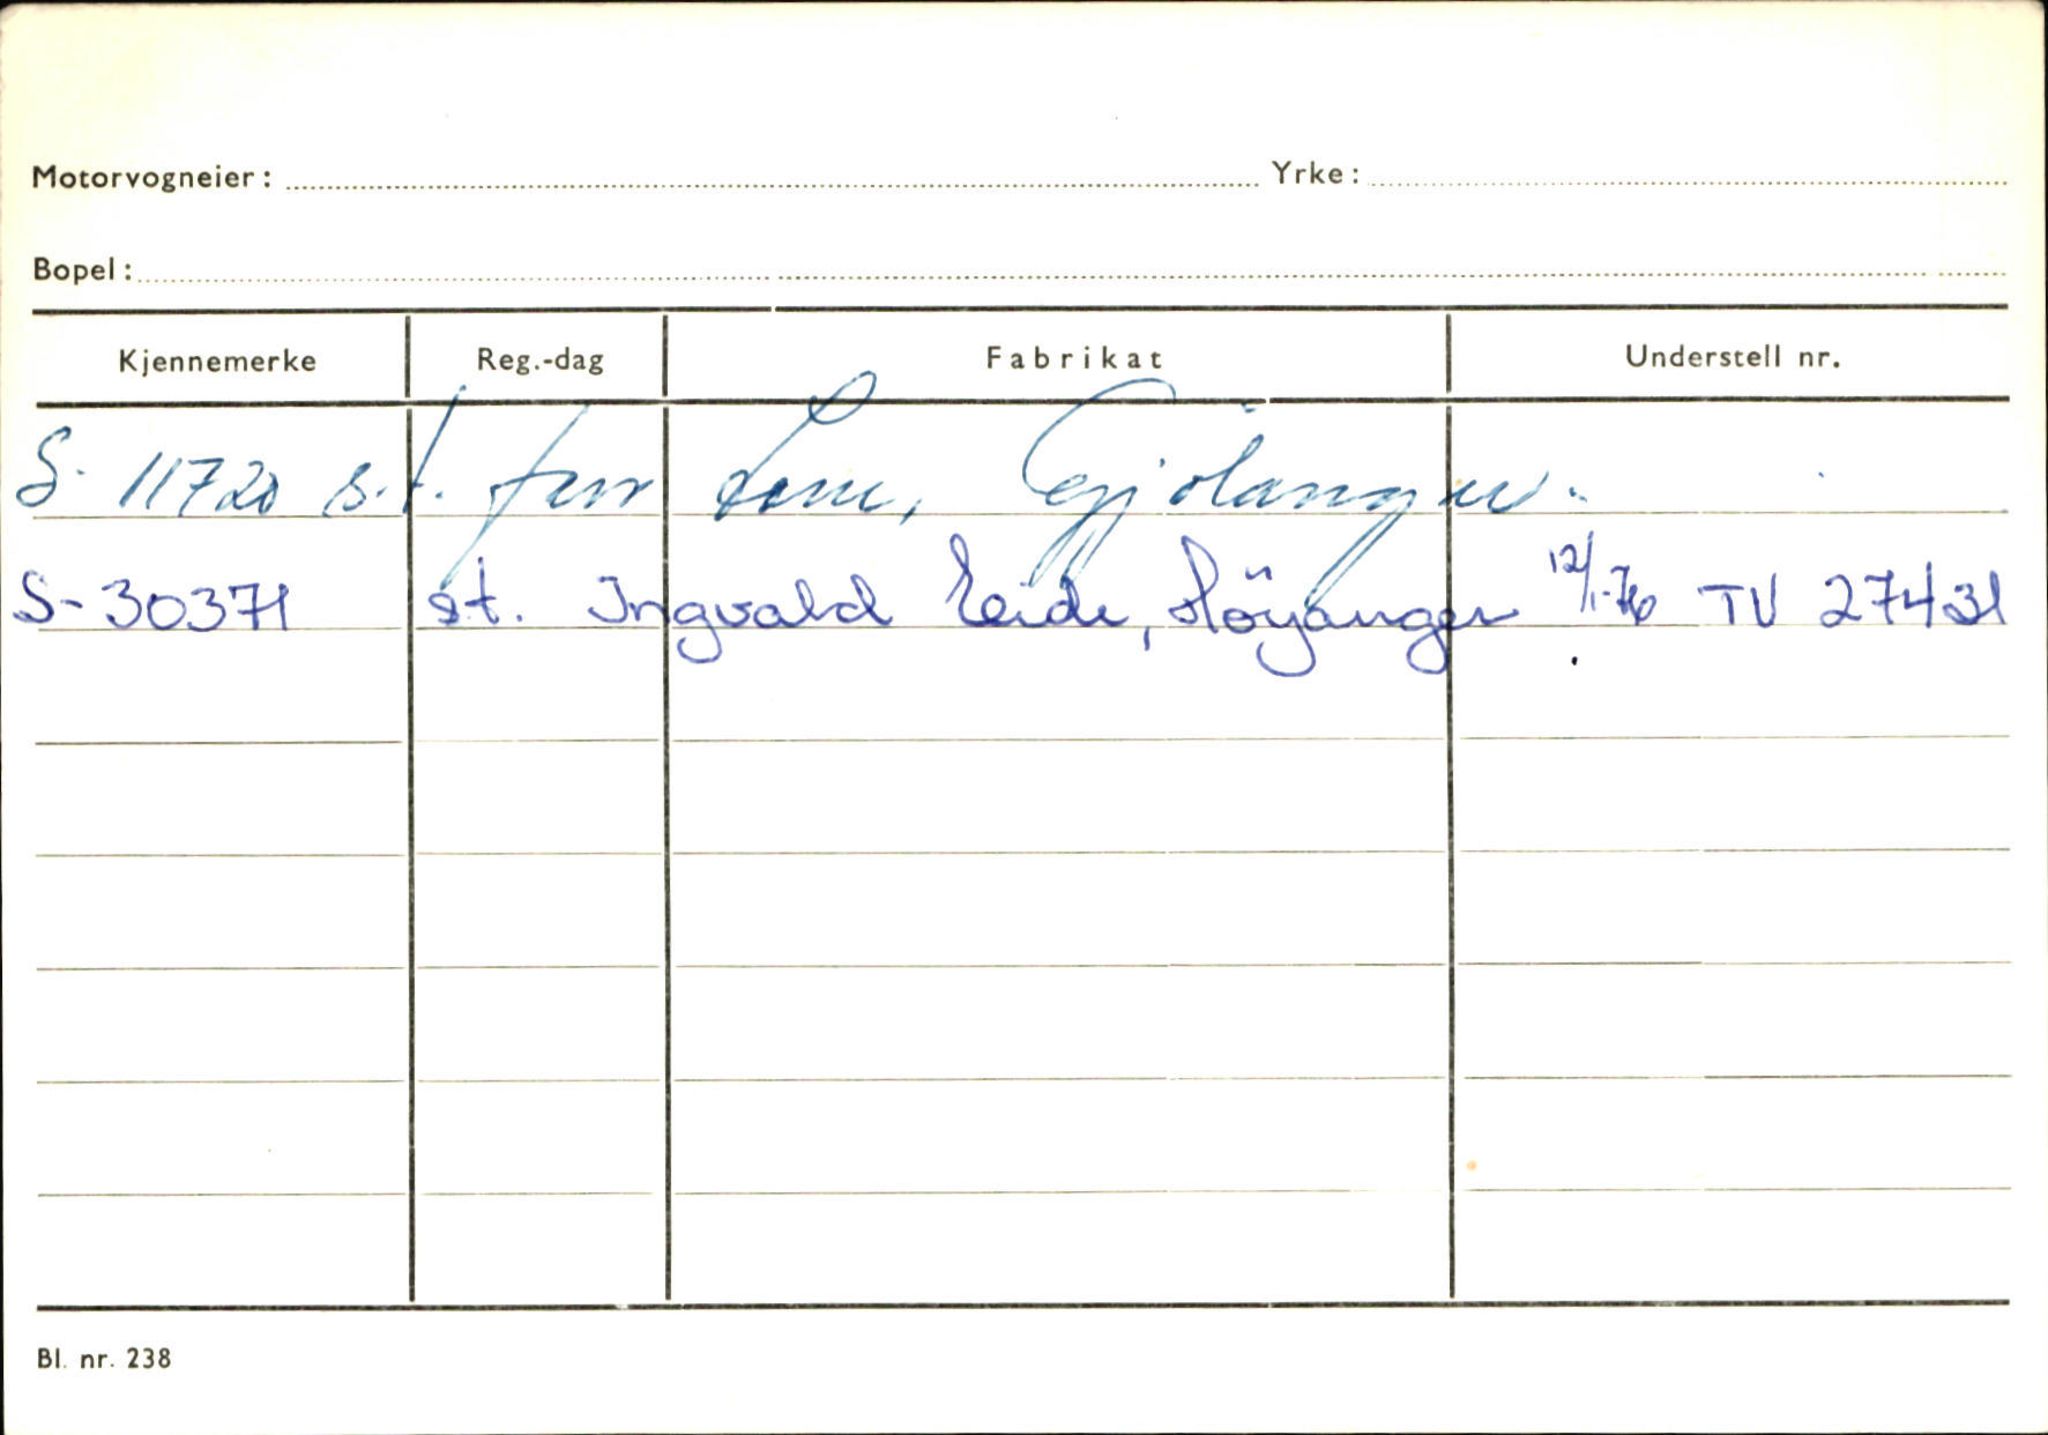 Motorvogneier: Yrke:
Bopel:
Kjennemerke Reg.-dag Fabrikat Understell nr.
S- 11720 s.t. Finn Lom, Gjölanger.
S-30371 st. Ingvald Eide, Höyanger 12/1-76 TV 27431
Bl. nr. 238